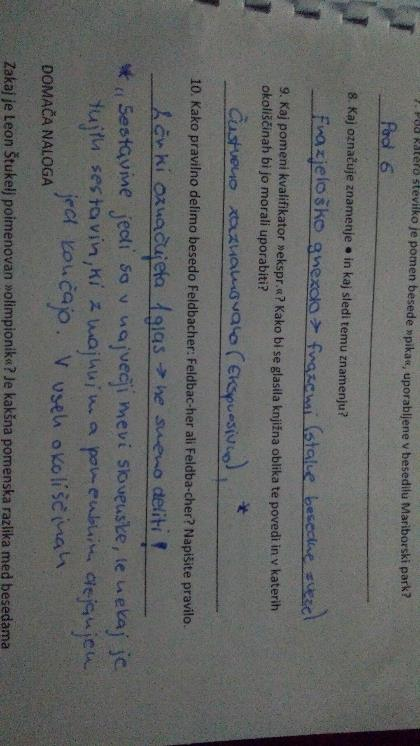 7. Pod katero številko je pomen besede »pika«, uporabljene v besedilu Mariborski park?
Pod 6
8. Kaj označuje znamenje ● in kaj sledi temu znamenju?
Frazeološko gnezdo → frazemi (stalne besedne zveze)
9. Kaj pomeni kvalifikator »ekspr.«? Kako bi se glasila knjižna oblika te povedi in v katerih
okoliščinah bi jo morali uporabiti?
Čustveno zaznamovano (Ekspresivno), *
10. Kako pravilno delimo besedo Feldbacher: Feldbac-her ali Feldba-cher? Napišite pravilo.
2 črki označujeta 1 glas → ne smemo deliti!
* „Sestavine jedi so v največji meri slovenske, le nekaj je
tujih sestavin, ki z majhnim a pomembnim dejanjem
jed končajo. V vseh okoliščinah
DOMAČA NALOGA
Zakaj je Leon Štukelj poimenovan »olimpionik«? Je kakšna pomenska razlika med besedama